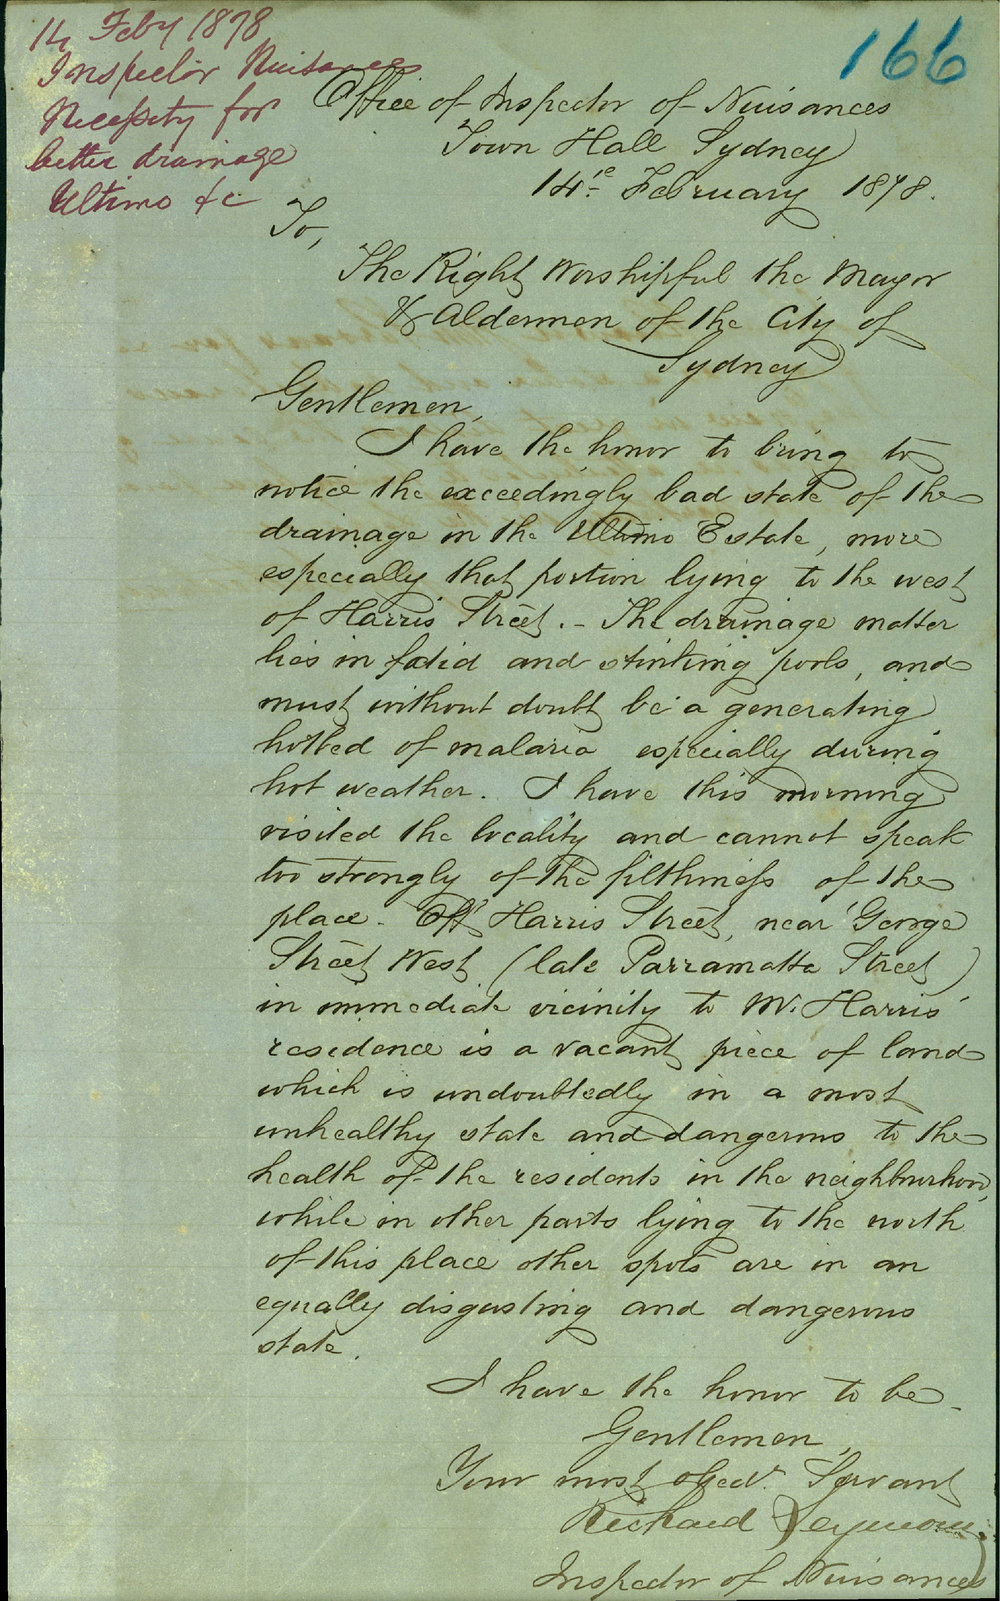 14 Feby 1878
Inspector Nuisances
Necessity for
better drainage
Ultimo &c
166
Office of Inspector of Nuisances
Town Hall Sydney
14th February 1878.
To,
The Right Worshipful the Mayor
& Aldermen of the City of
Sydney
Gentlemen,
I have the honor to bring to
notice the exceedingly bad state of the
drainage in the Ultimo Estate, more
especially that portion lying to the west
of Harris Street. - The drainage matter
lies in fœtid and stinking pools, and
must without doubt be a generating
hotbed of malaria especially during
hot weather. I have this morning
visited the locality and cannot speak
too strongly of the filthiness of the
place. Off Harris Street, near George
Street West (late Parramatta Street)
in immediate vicinity to Mr. Harris'
residence is a vacant piece of land
which is undoubtedly in a most
unhealthy state and dangerous to the
health of the residents in the neighbourhood,
while in other parts lying to the north
of this place other spots are in an
equally disgusting and dangerous
state.
I have the honor to be
Gentlemen,
Your most obedt. Servant
Richard Seymour
Inspector of Nuisances